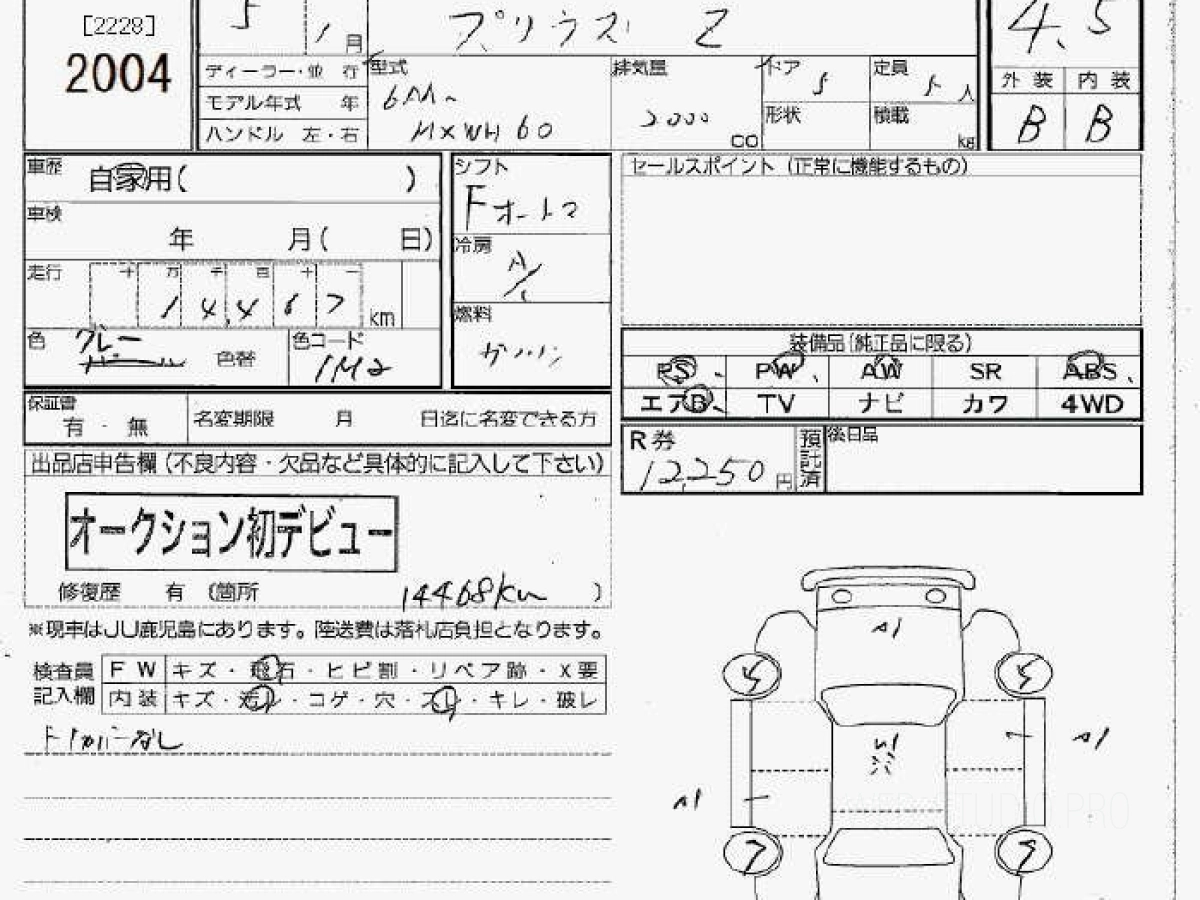 [2228]
2004
5 1月
プリウス Z
4.5
ディーラー・並 行
モデル年式 年
ハンドル 左・右
型式
6AA-
MXWH60
排気量
2000
CC
ドア 5
形状
定員 5 人
積載 kg
外装 内装
B B
車歴 自家用( )
車検 年 月( 日)
走行 十 万 千 百 十 一
14,467 km
色 グレー 色替
色コード 1M2
シフト
Fオートマ
冷房
A/C
燃料
ガソリン
セールスポイント (正常に機能するもの)
装備品(純正品に限る)
PS PW AW SR ABS
エアB TV ナビ カワ 4WD
保証書
有 ・ 無
名変期限 月 日迄に名変できる方
R券
12,250 円
預託済
後日品
出品店申告欄 (不良内容・欠品など具体的に記入して下さい)
オークション初デビュー
修復歴 有 (箇所 14468km )
※現車はJU鹿児島にあります。陸送費は落札店負担となります。
検査員記入欄
FW キズ・飛石・ヒビ割・リペア跡・X要
内装 キズ・汚レ・コゲ・穴・スレ・キレ・破レ
A1
5 5
A1
A1
7